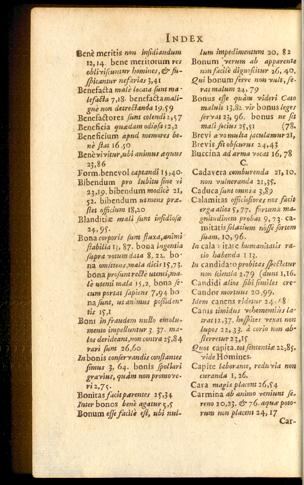 INDEX
Benè meritis non insidiandum
12,14. bene meritorum res
obliviscuntur homines, & su-
spicantur nefarias 3,41
Benefacta malè locata sunt ma-
lefacta 7,18. benefacta mali-
gnè non detrectanda 19,59
Benefactores sunt colendi 2,57
Beneficia quædam odiosa 12,2
Beneficium apud memores be-
nè stat 16.50
Benè vivitur, ubi animus æquus
23,86
Form. benevol captandi 15,40.
Bibendum pro lubitu sine vi
23,19. bibendum modicè 21,
52. bibendum nomen præ-
stet officium 18,20
Blanditiæ mali sunt insidiosæ
24, 95.
Bona corporis sunt fluxa, animi
stabilia 13, 87. bona ingentia
supra votum data 8,22. bo-
na omittens, mala ditis 15,73.
bona prosunt rectè utenti, ma-
lè utenti mala 15,2, bona se-
cum portat sapiens 7,94 bo-
na sunt, ut animus possiden-
tis 15,1
Boni in fraudem nullo emolu-
mento impelluntur 3. 37. ma-
los derideant, non contra 25,84
rari sunt 26,60
In bonis conservandis constantes
simus 3, 64. bonis spoliari
gravius, quàm non promove-
ri 2,75.
Bonitas facit parentes 25,34
Inter bonos benè agatur 5,5
Bonum esse facilè est, ubi nul-
lum impedimentum 20, 82
Bonum verum ab apparente
non facilè dignoscitur 26, 40,
Qui bonum ferre non vult, fe-
ras malum 24, 79
Bonus esse quàm videri Cato
maluit 13,81 vir bonus leges
servat 23, 96. bonus ne sit
mali jucines 25,51 (78.
Brevi arcu multa jaculamur 21,
Brevis sit obscurus 24,43
Buccina ad arma vocat 16,78
C.
Cadavera comburenda 21, 10.
non vulneranda 21,35.
Caduca sunt omnia 3,89
Calamitas officiosiores nos facit
erga alios 5,77. fortuna ma-
gnitudinem probat 9, 73 ca-
lamitatis solatium nosse sortem
suam, 10, 96.
In calamitate humanitatis ra-
tio habenda 1 13.
In candidato probitas spectetur
non scientia 2.79 (dunt 1,16.
Candidi alios sibi similes cre-
Candor mortuus 20.99.
Idem canens ridetur 24.48
Canis timidus vehementius la-
trat 12,37. inspuitat vexat non
lupos 22,33. à corio non ab-
sterretur 23,15
Quot capita, tot sententiæ 22,85.
vide Homines.
Capite laborante, reduvia non
curanda 1, 26.
Cara magis placent 26,54
Carmina ab animo veniunt se-
reno 20,23. & 76. aquæ poto-
rum non placent 24, 17
Car-